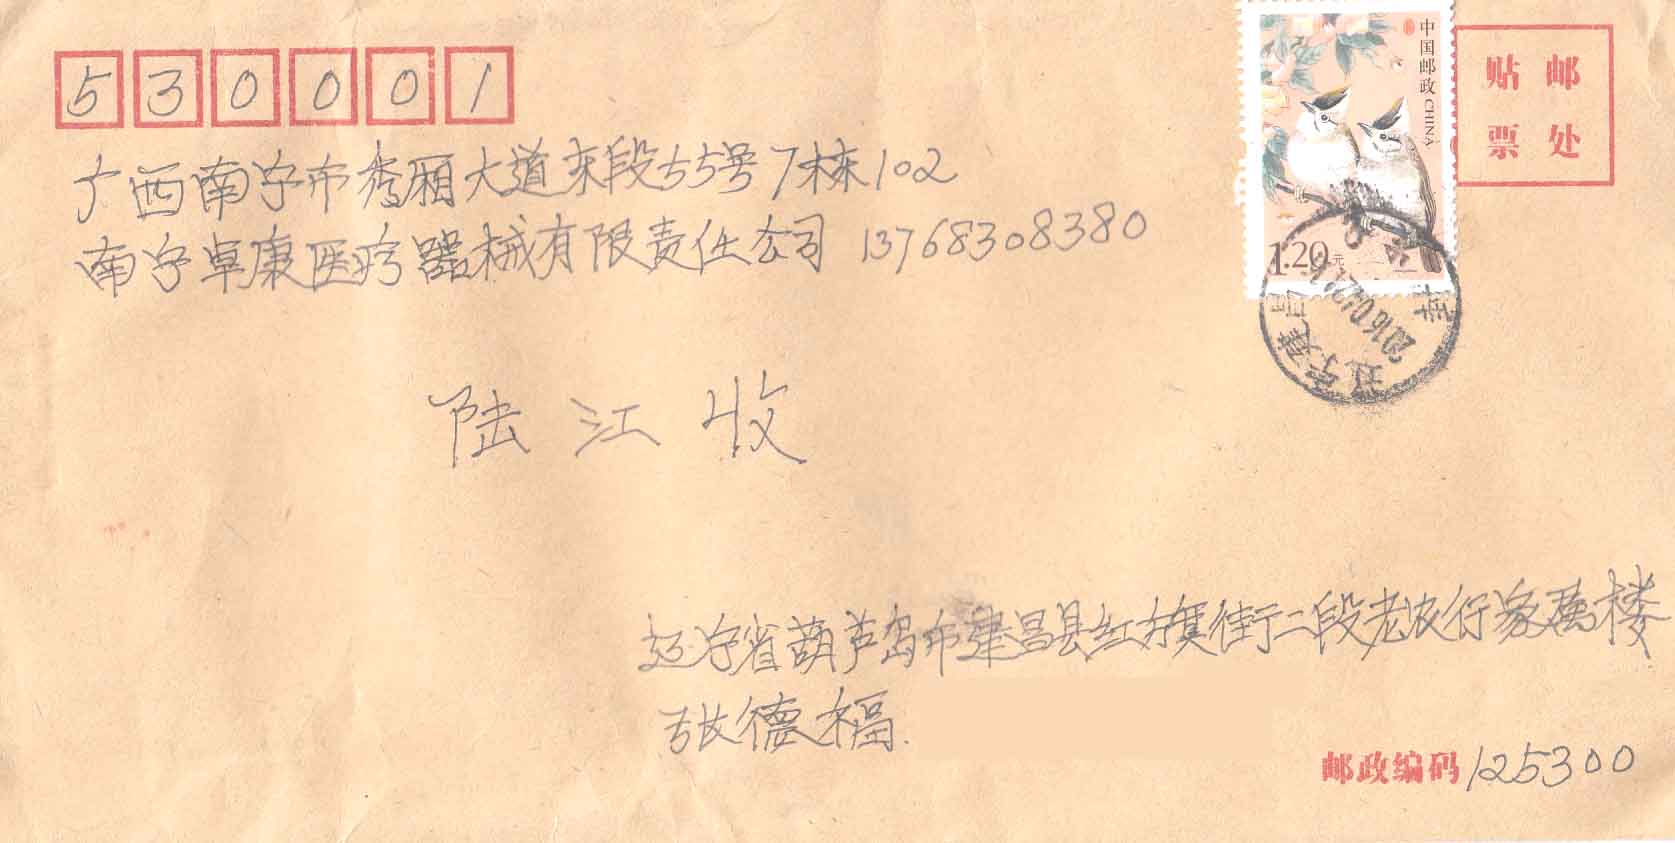 530001
中国邮政 CHINA
1.20元
贴邮
票处
广西南宁市秀厢大道东段55号7栋102
南宁卓康医疗器械有限责任公司 13768308380
陆江收
辽宁建昌
2016.0
辽宁省葫芦岛市建昌县红旗街二段老农行家属楼
敖德福
邮政编码 125300